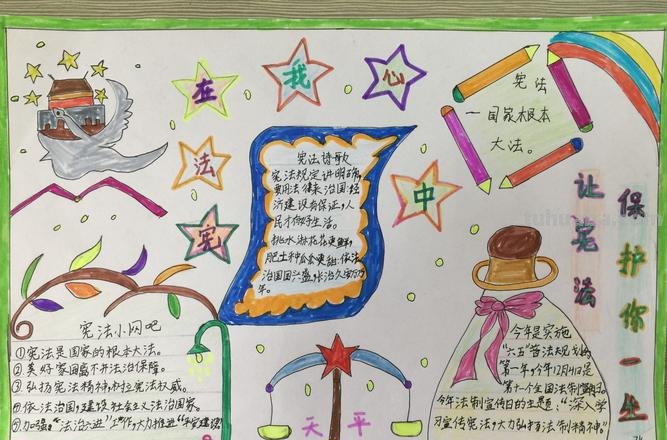 宪法在我心中
宪法
一国家根本
大法。
让宪法
保护你一生
宪法诗歌
宪法规定讲明确,
要用法律来治国,经
济建设有保证,人
民才你好生活。
挑水淋花花更鲜,
肥土种瓜瓜更甜,依法
治国国兴盛,长治久安万万
年。
宪法小网吧
①宪法是国家的根本大法。
②美好家园离不开法治保障。
③弘扬宪法精神,树立宪法权威。
④依法治国,建设社会主义法治国家。
⑤加强"法治六进"工作,大力推进"平安建设"
天平
今年是实施
"六五"普法规划的
第一年,今年12月4日是
第十个全国法制宣传日。
今年法制宣传日的主题:"深入学
习宣传宪法,大力弘扬法制精神"